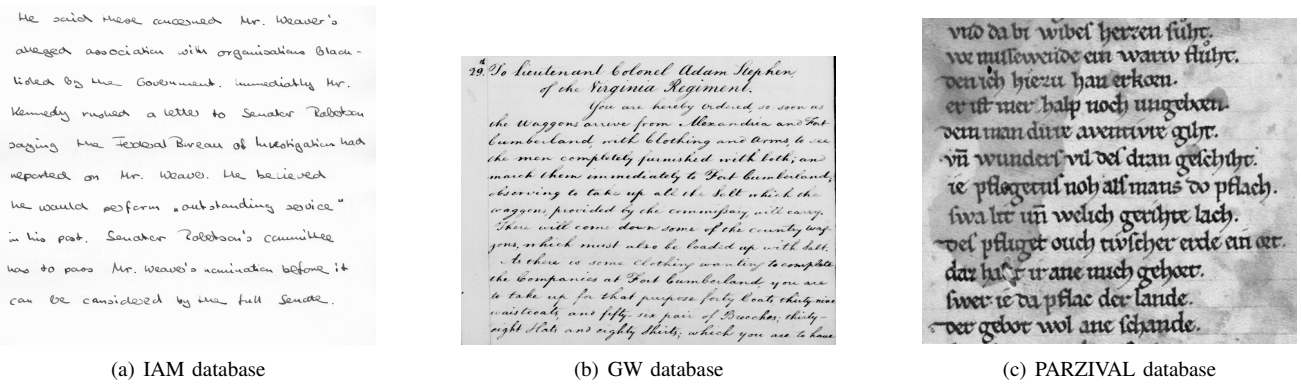 He said these concerned Mr. Weaver's
alleged association with organisations black-
listed by the Government. immediately Mr.
Kennedy rushed a letter to Senator Robertson
saying the Federal Bureau of Investigation had
reported on Mr. Weaver. He believed
he would perform "outstanding service"
in his post. Senator Robertson's committee
has to pass Mr. Weaver's nomination before it
can be considered by the full Senate.
(a) IAM database
29th. To Lieutenant Colonel Adam Stephen,
of the Virginia Regiment.
You are hereby ordered, so soon as
the Waggons arrive from Alexandria and Fort
Cumberland, with Clothing and Arms, to see
the men completely furnished with both; and
march them immediately to Fort Cumberland;
observing to take up all the Salt which the
waggons, provided by the commissary, will carry.
There will come down some of the country wag-
gons, which must also be loaded up with Salt.
As there is some clothing wanting to complete
the Companies at Fort Cumberland, you are
to take up for that purpose forty Coats, thirty-nine
waistcoats, and fifty-six pair of Breeches; thirty-
eight Hats and eighty Shirts; which you are to have
(b) GW database
vnd da bi wibes herzen suht.
vor missewende ein wariv fluht.
den ich hiezu han erkorn.
er ist mer halp noch ungeborn.
dem man dirre aventivre giht.
vn̄ wunders vil des dran geschiht.
ie pflegents noh als mans do pflach.
swa lit vn̄ welich gerihte lach.
des pfliget ouch tivscher erde ein ort.
daz ir ane mich gehort.
swer ie da pflac der lande.
der gebot wol ane schande.
(c) PARZIVAL database